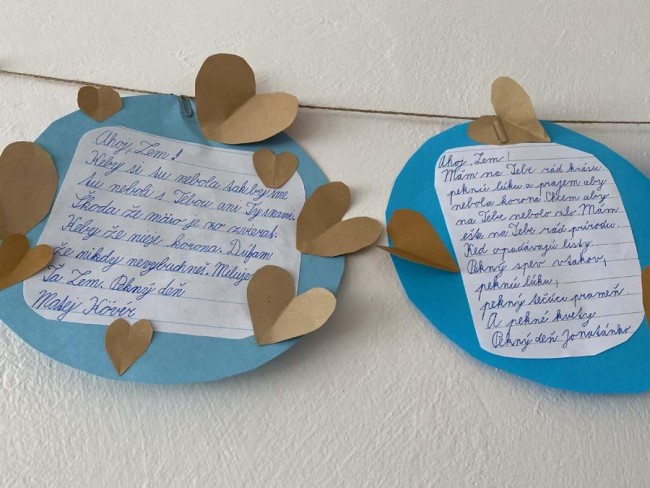 Ahoj, Zem!
Keby si tu nebola tak by sme
tu neboli s Tebou ani Ty s nami.
Škoda že mäso je zo zvierat.
Keby že nieje korona. Dúfam
že nikdy nevybuchneš. Milujem
Ťa Zem. Pekný deň
Matej Hövér
Ahoj, Zem!
Mám na Tebe rád krásu
peknú lúku a prajem aby
nebola korona Chcem aby
na Tebe nebolo zlo. Mám
ešte na Tebe rád prírodu.
Keď opadávajú listy.
Pekný spev vtákov,
peknú lúku,
pekný tečúci prameň
A pekné kvety
Pekný deň Jonatánko